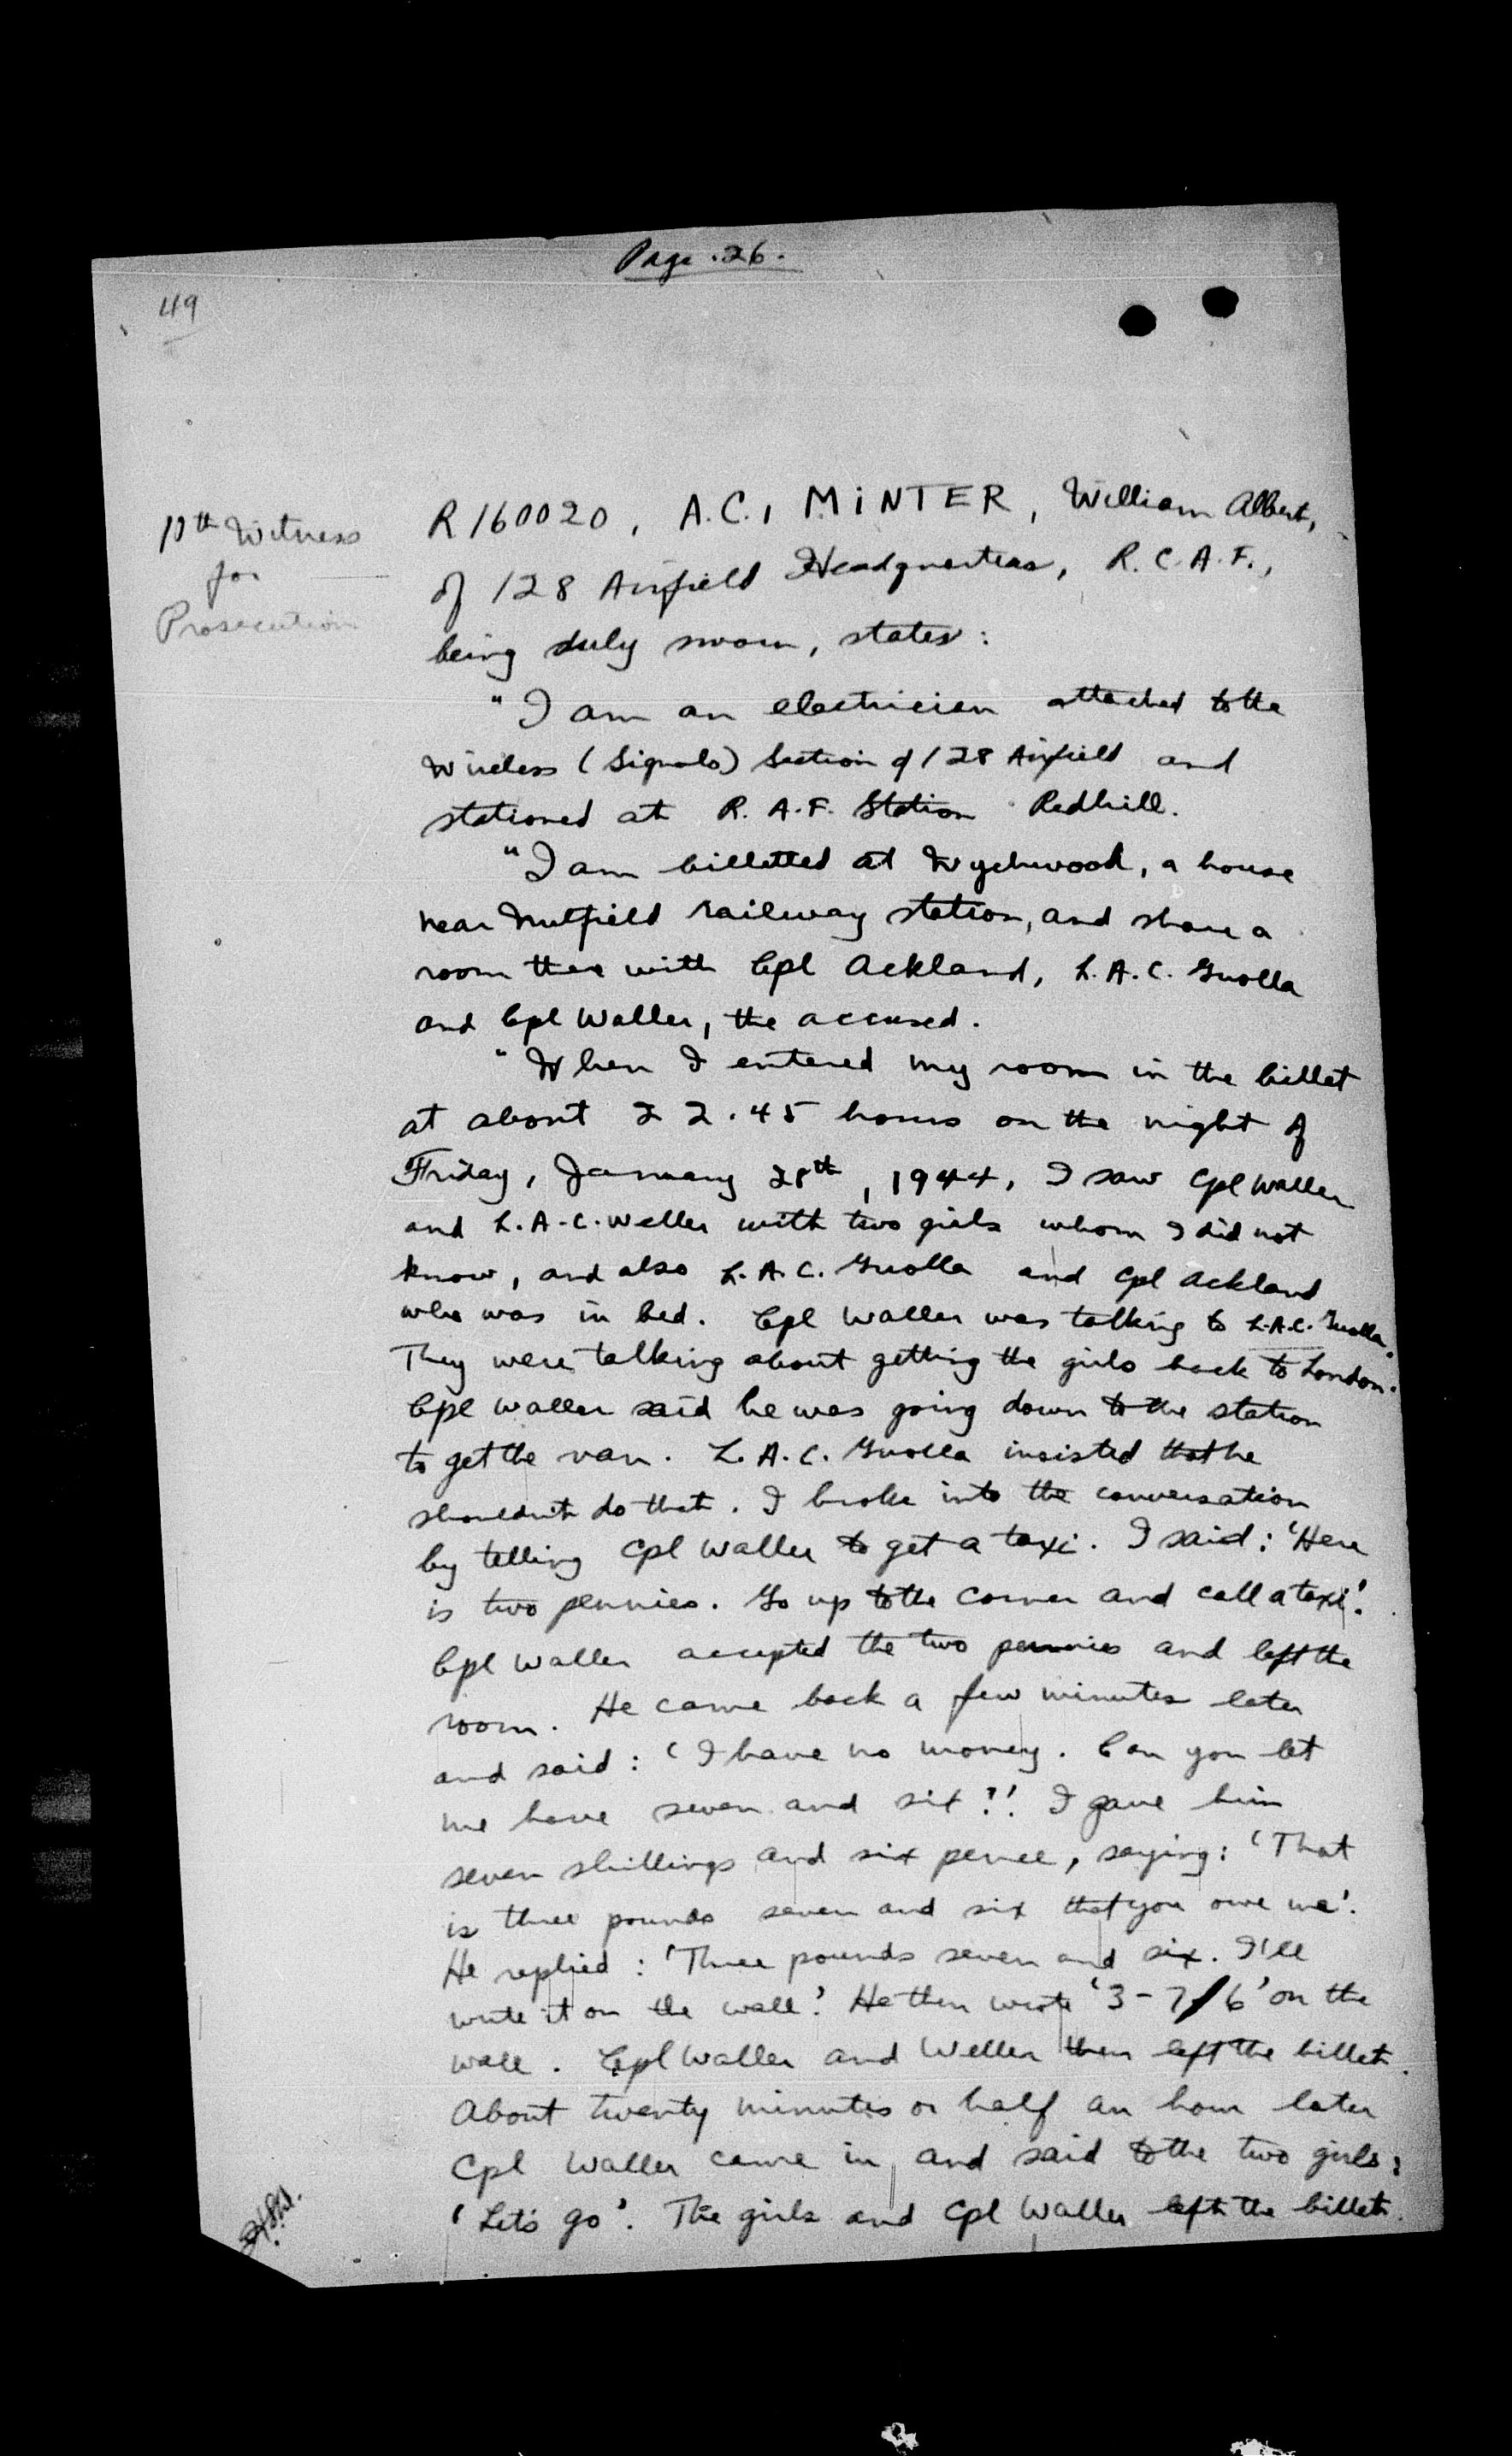 Page. 26.
49
R160020, A.C.1 MINTER, William Albert,
of 128 Airfield Headquarters, R.C.A.F.,
being duly sworn, states:
Witness
for
Prosecution
"I am an electrician attached to the
Wireless (Signals) Section of 128 Airfield and
stationed at R.A.F. Station Redhill.
"I am billetted at Wychwood, a house
near Nutfield railway station, and share a
room there with Cpl Ackland, L.A.C. Guolla
and Cpl Waller, the accused.
"When I entered my room in the billet
at about 22.45 hours on the night of
Friday, January 28th, 1944, I saw Cpl Waller
and L.A.C. Weller with two girls whom I did not
know, and also L.A.C. Guolla and Cpl Ackland
who was in bed. Cpl Waller was talking to L.A.C. Guolla.
They were talking about getting the girls back to London.
Cpl Waller said he was going down to the station
to get the van. L.A.C. Guolla insisted that he
shouldn't do that. I broke into the conversation
by telling Cpl Waller to get a taxi. I said: 'Here
is two pennies. Go up to the corner and call a taxi'.
Cpl Waller accepted the two pennies and left the
room. He came back a few minutes later
and said: 'I have no money. Can you let
me have seven and six?'. I gave him
seven shillings and six pence, saying: 'That
is three pounds seven and six that you owe me'.
He replied: 'Three pounds seven and six. I'll
write it on the wall'. He then wrote '3-7/6' on the
wall. Cpl Waller and Weller then left the billet.
About twenty minutes or half an hour later
Cpl Waller came in and said to the two girls:
'Let's go'. The girls and Cpl Waller left the billet.